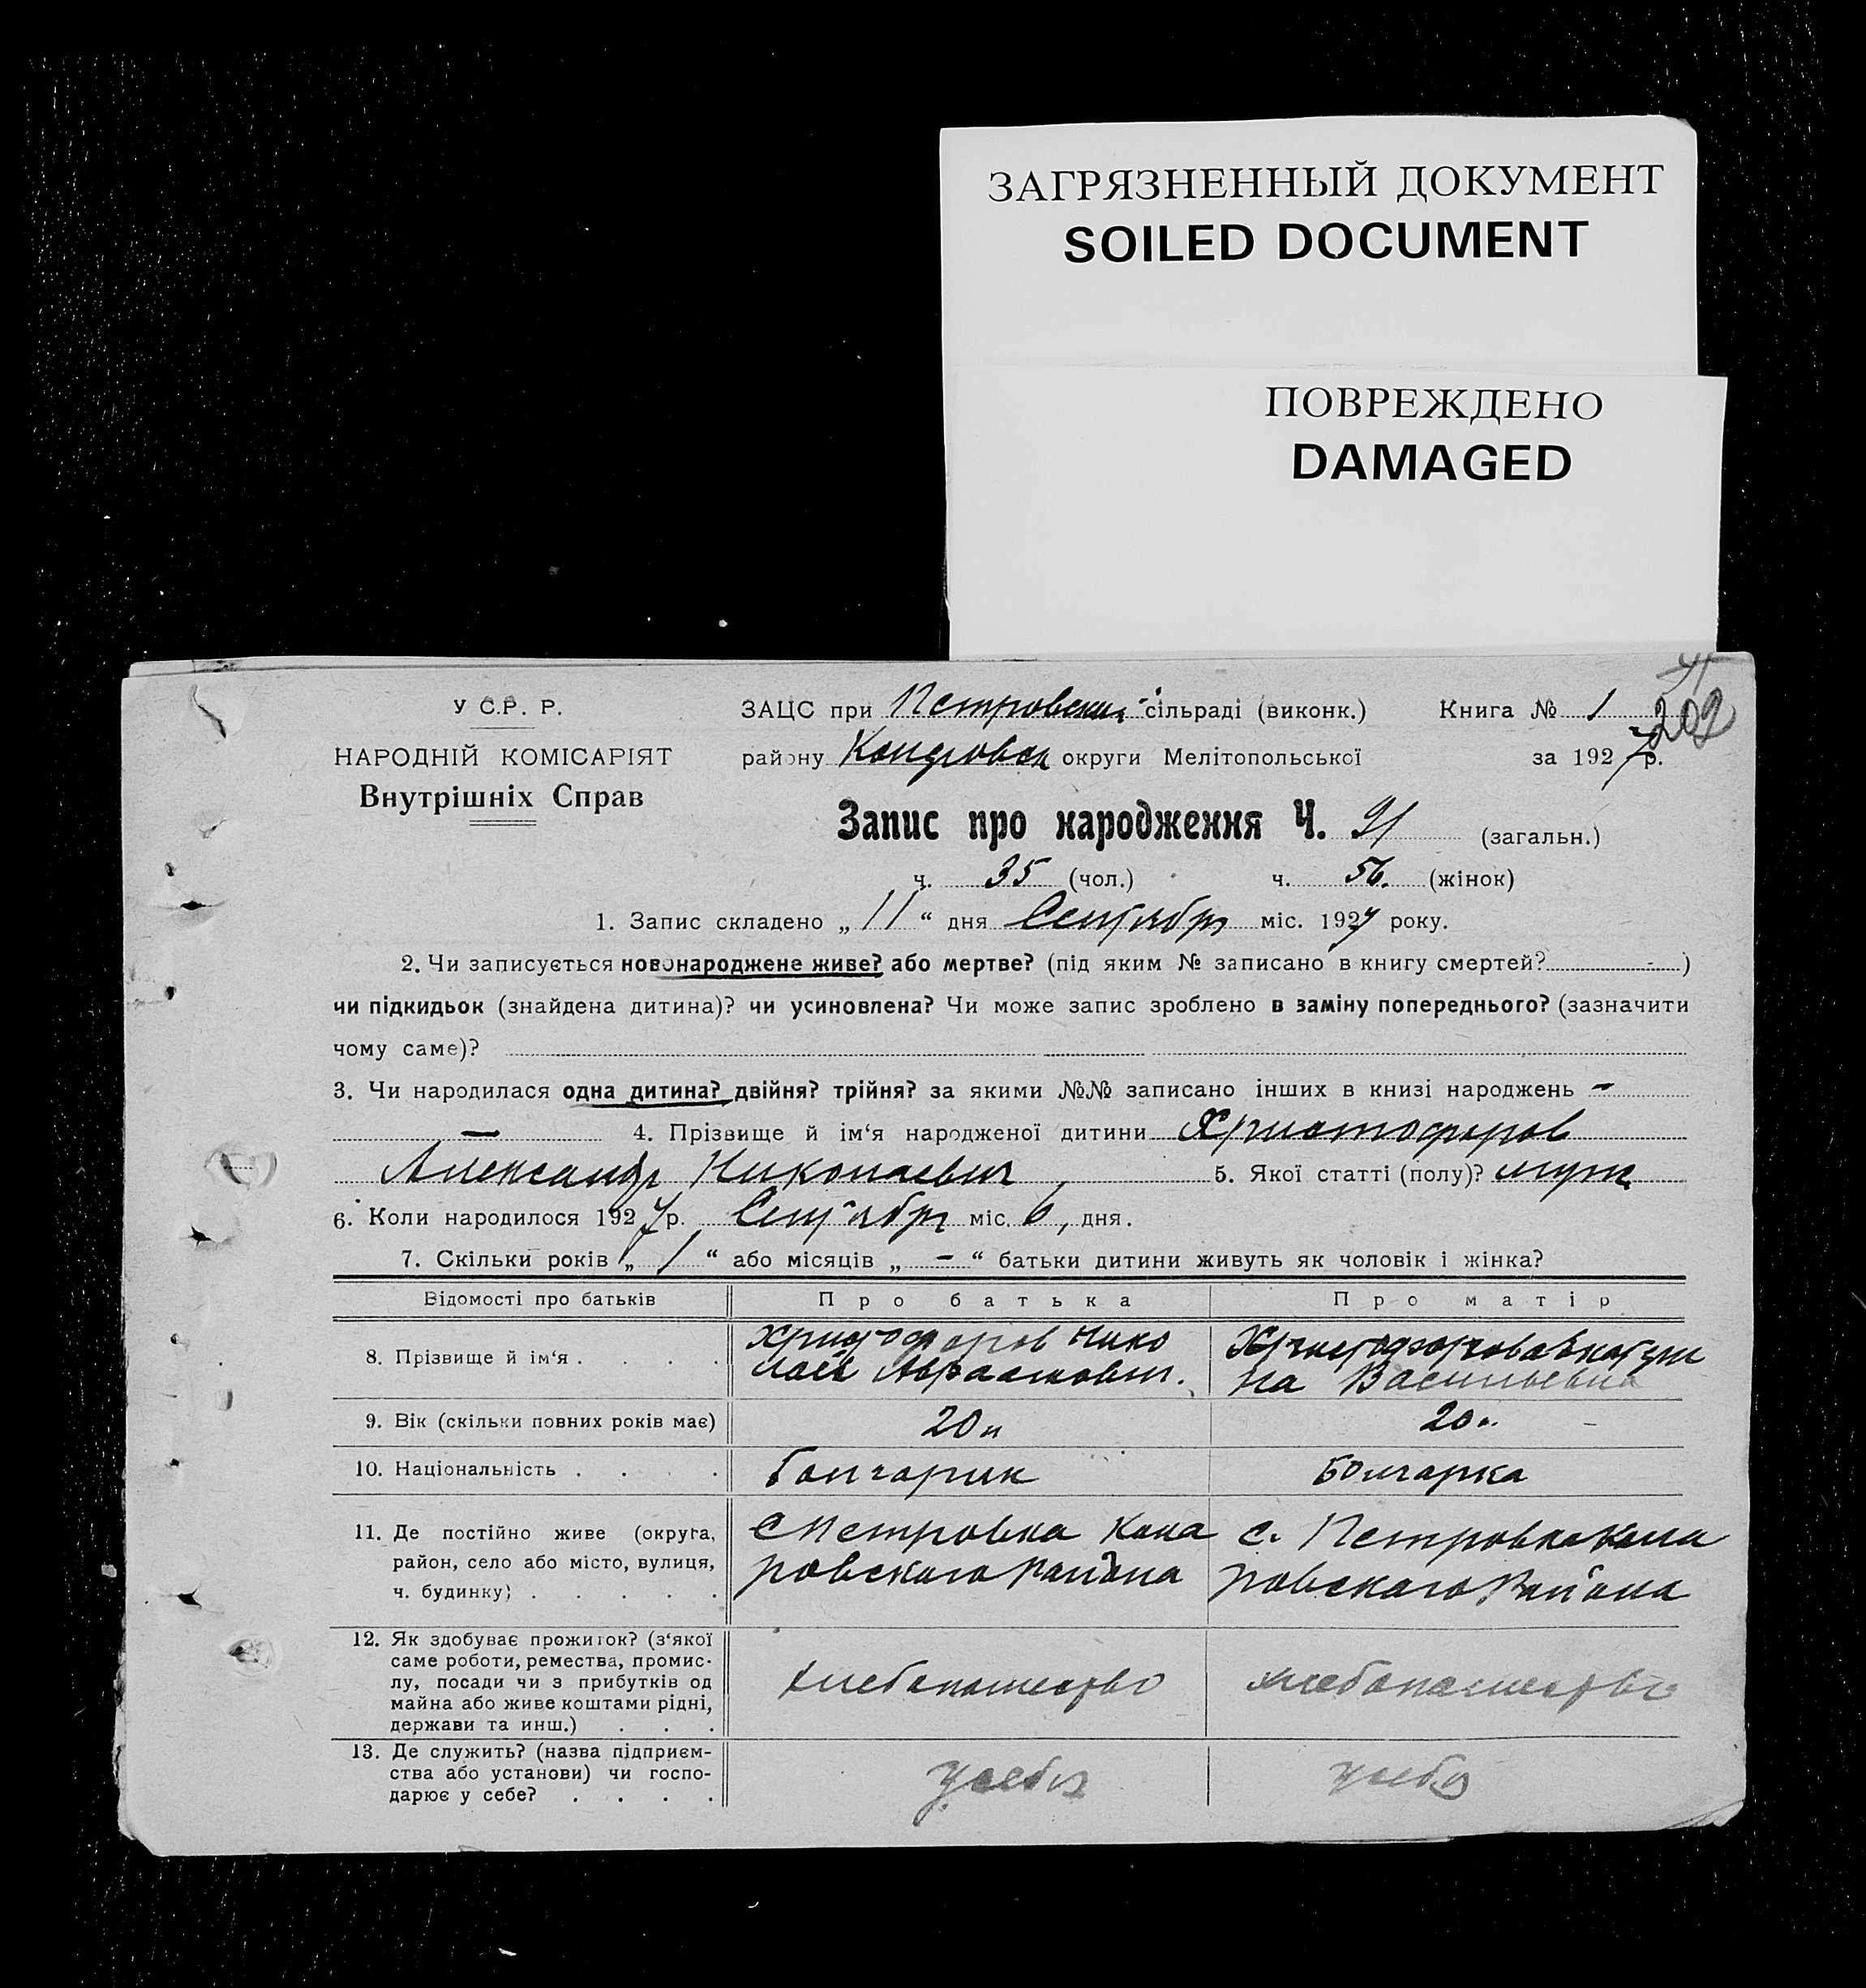 ЗАГРЯЗНЕННЫЙ ДОКУМЕНТ
SOILED DOCUMENT
ПОВРЕЖДЕНО
DAMAGED
У С.Р. Р.
НАРОДНІЙ КОМІСАРІЯТ
Внутрішніх Справ
ЗАЦС при Петровском сільраді (виконк.) Книга № 1
202
району округи Мелітопольської за 1927 р.
Запис про народження Ч. 91 (загальн.)
ч. 35 (чол.) ч. 56. (жінок)
1. Запис складено „ 11 “ дня Сентября міс. 1927 року.
2. Чи записується новонароджене живе? або мертве? (під яким № записано в книгу смертей? - )
чи підкидьок (знайдена дитина)? чи усиновлена? Чи може запис зроблено в заміну попереднього? (зазначити
чому саме)?
3. Чи народилася одна дитина? двійня? трійня? за якими №№ записано інших в книзі народжень -
— 4. Прізвище й ім‘я народженої дитини Христофоров
Александр Николаевич 5. Якої статті (полу)? муж.
6. Коли народилося 1927 р. Сентября міс. 6, дня.
7. Скільки років „ 1 “ або місяців „ - “ батьки дитини живуть як чоловік і жінка?
Відомості про батьків Про батька Про матір
8. Прізвище й ім‘я . . . . Христофоров Нико
лаев Аврамович. Христофорова Екатери
на Васильевна
9. Вік (скільки повних років має) 20 л 20 л.
10. Національність . . . . болгарин Болгарка
11. Де постійно живе (округа,
район, село або місто, вулиця,
ч. будинку) . . . . .
с Петровка Кола
ровского Района
с. Петровка Кола
ровского Района
12. Як здобуває прожиток? (з‘якої
саме роботи, ремества, промис-
лу, посади чи з прибутків од
майна або живе коштами рідні,
держави та инш.) . . .
хлебопашество хлебопашество
13. Де служить? (назва підприєм-
ства або установи) чи госпо-
дарює у себе? . . . .
у себя у себя